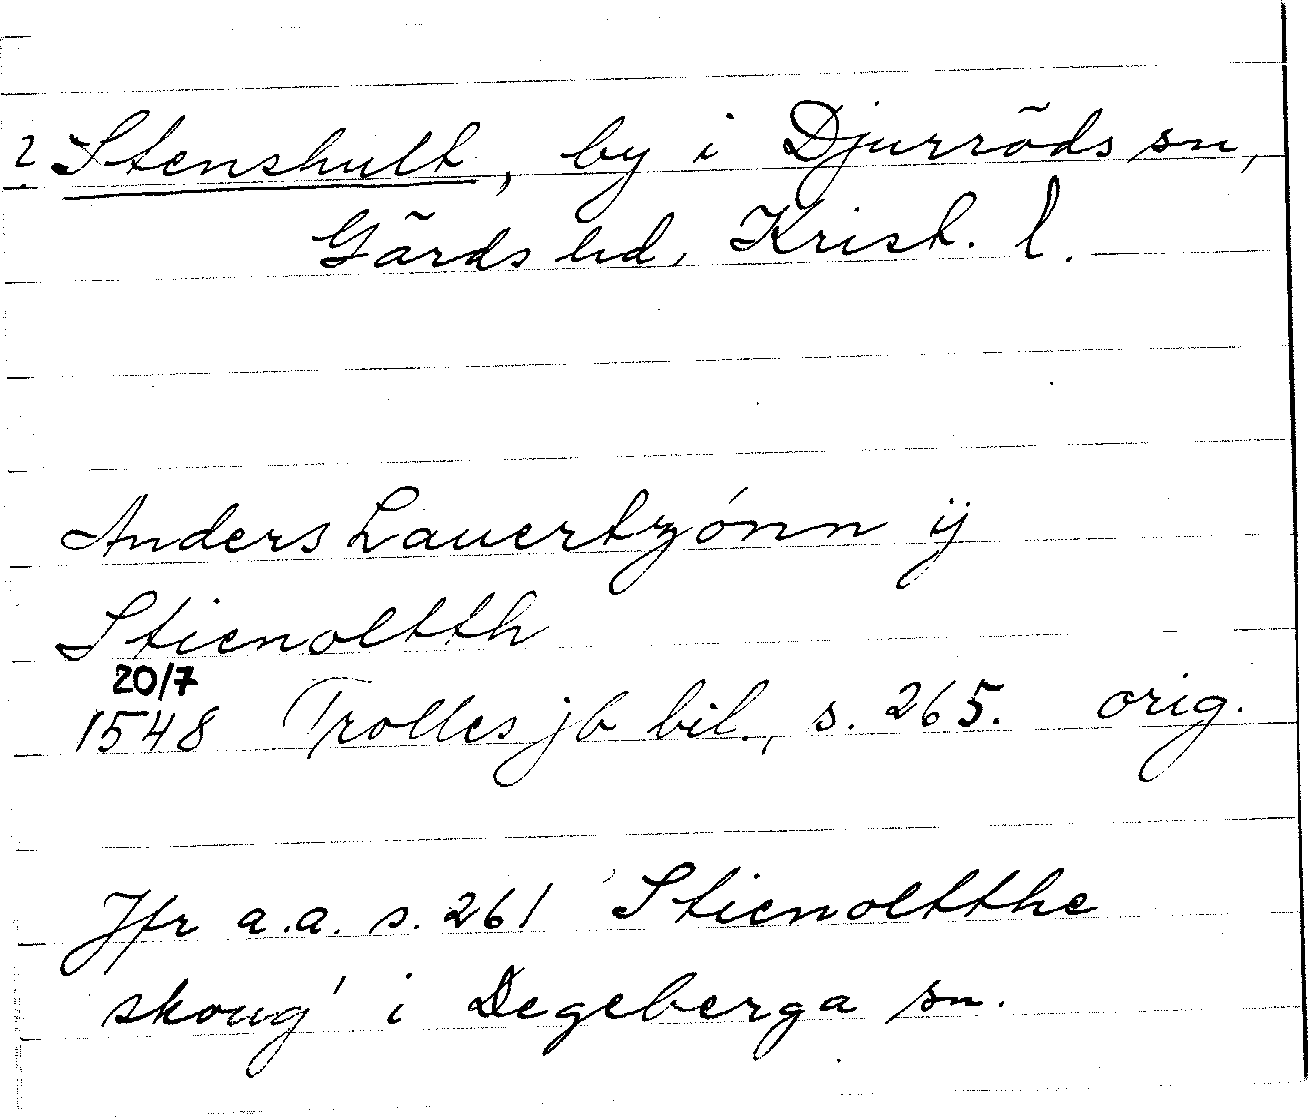 ? Stenshult, by i Djurröds sn,
Gärds hd, Krist. l.
Anders Lauertzónn ij
Stienoltth
20/7
1548 Trolles jb bil., s. 265. orig.
Jfr a.a. s. 261 'Stienoltthe
skoug' i Degeberga sn.